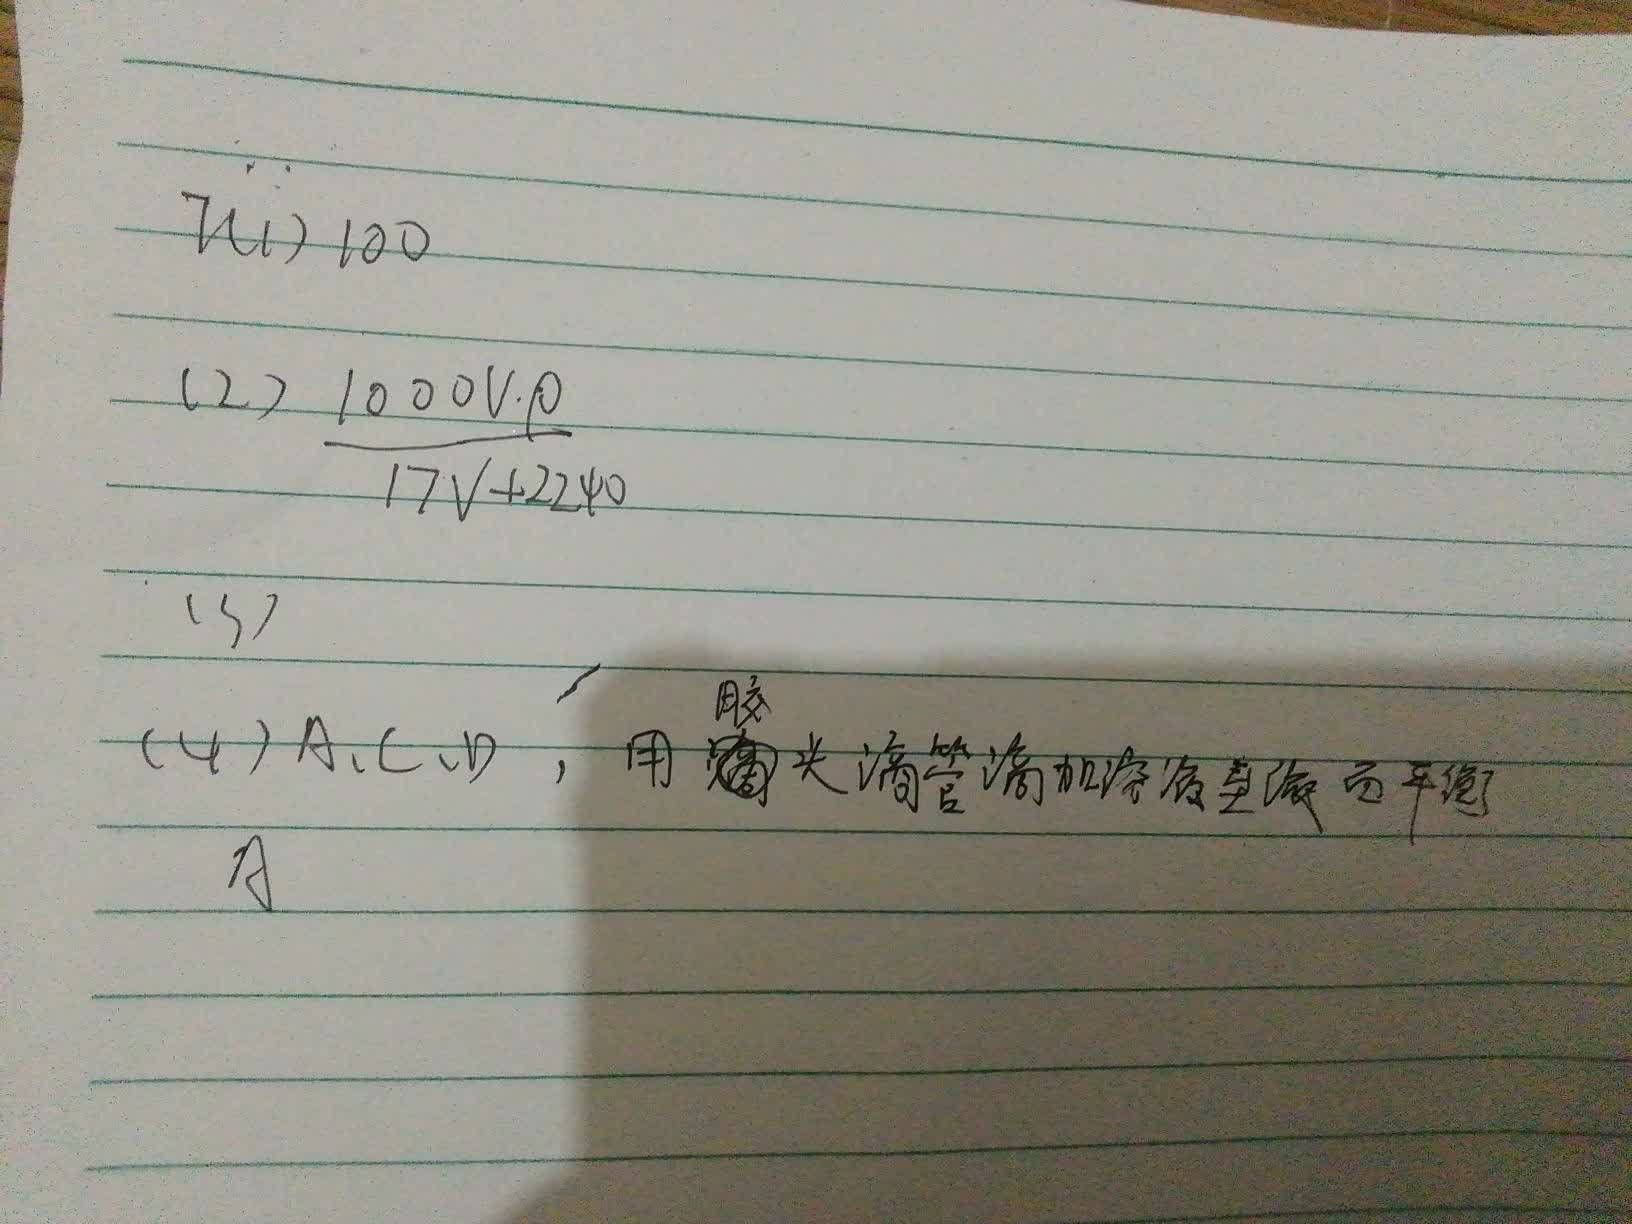 7(1) 100
(2) 1000V·ρ
17V+2240
(3)
(4) A、C、D , 用胶头滴管滴加溶液至液面平衡
A